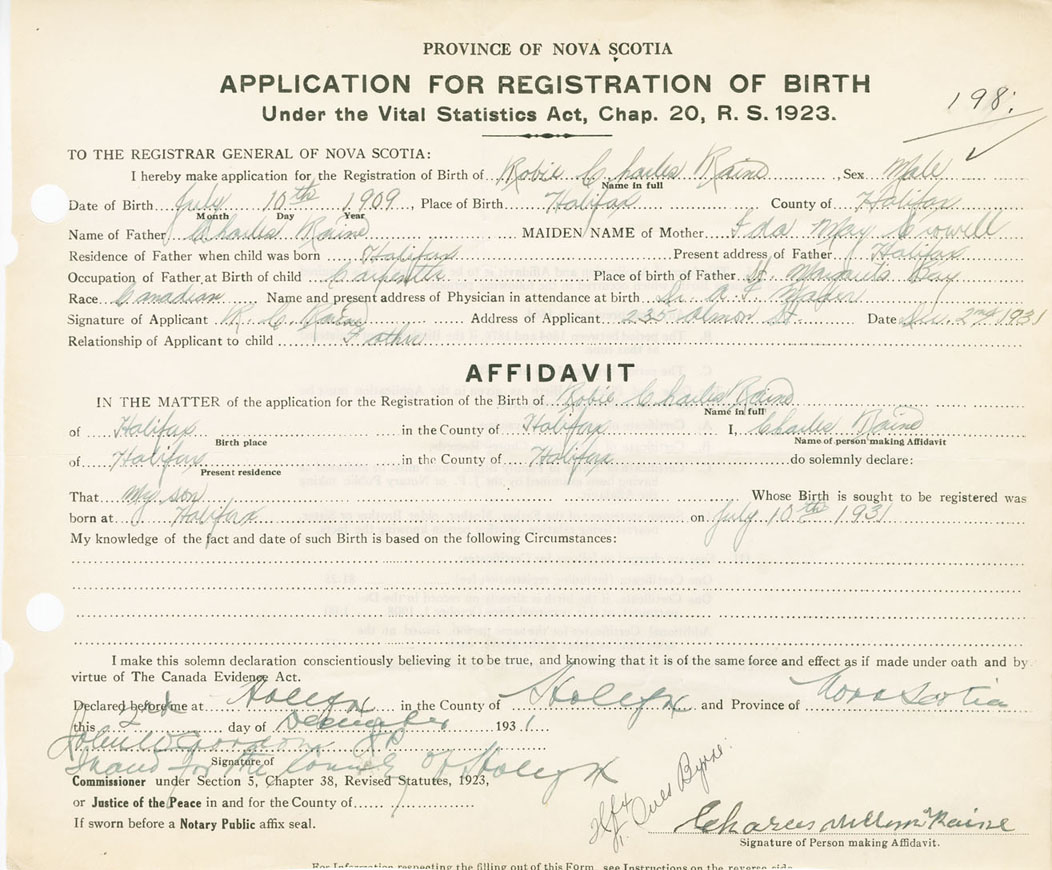 PROVINCE OF NOVA SCOTIA
APPLICATION FOR REGISTRATION OF BIRTH
Under the Vital Statistics Act, Chap. 20, R. S. 1923.
198
TO THE REGISTRAR GENERAL OF NOVA SCOTIA:
I hereby make application for the Registration of Birth of Robie Charles Raine, Sex Male
Name in full
Date of Birth July 10th 1909, Place of Birth Halifax County of Halifax
Month Day Year
Name of Father Charles Raine MAIDEN NAME of Mother Ida May Crowell
Residence of Father when child was born Halifax Present address of Father Halifax
Occupation of Father at Birth of child Carpenter Place of birth of Father St. Margarets Bay
Race Canadian Name and present address of Physician in attendance at birth Dr. A. Mader
Signature of Applicant R. C. Raine Address of Applicant 235 Almon St. Date Dec. 2nd 1931
Relationship of Applicant to child Father
AFFIDAVIT
IN THE MATTER of the application for the Registration of the Birth of Robie Charles Raine
Name in full
of Halifax in the County of Halifax I, Charles Raine
Birth place Name of person making Affidavit
of Halifax in the County of Halifax do solemnly declare:
Present residence
That My son Whose Birth is sought to be registered was
born at Halifax on July 10th 1931
My knowledge of the fact and date of such Birth is based on the following Circumstances:
I make this solemn declaration conscientiously believing it to be true, and knowing that it is of the same force and effect as if made under oath and by
virtue of The Canada Evidence Act.
Declared before me at Halifax in the County of Halifax and Province of Nova Scotia
this 2nd day of December 1931
John W Gordon JP
Signature of
In and for the County of Halifax
Commissioner under Section 5, Chapter 38, Revised Statutes, 1923,
or Justice of the Peace in and for the County of
If sworn before a Notary Public affix seal.
Hfx
Byrne
Charles William Raine
Signature of Person making Affidavit.
For Information respecting the filling out of this Form, see Instructions on the reverse side